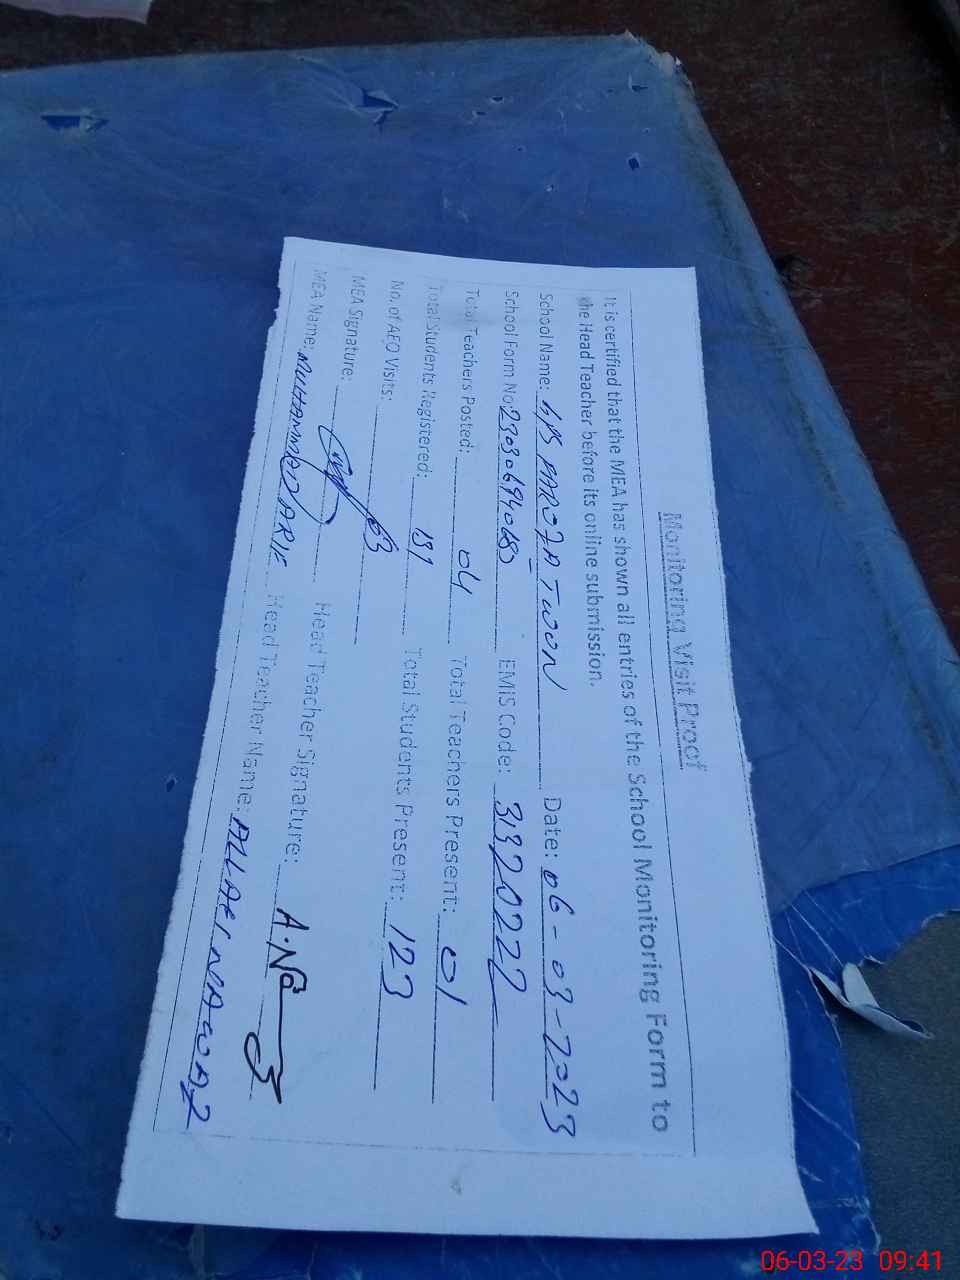 Monitoring Visit Proof
It is certified that the MEA has shown all entries of the School Monitoring Form to
the Head Teacher before its online submission.
School Name: GPS FAROZA TWON Date: 06-03-2023
School Form No: EMIS Code: 31320222
Total Teachers Posted: 04 Total Teachers Present: 01
Total Students Registered: 131 Total Students Present: 123
No. of AEO Visits: 03
MEA Signature: Head Teacher Signature:
MEA Name: MUHAMMAD ARIF Head Teacher Name: NAWAZ
06-03-23 09:41